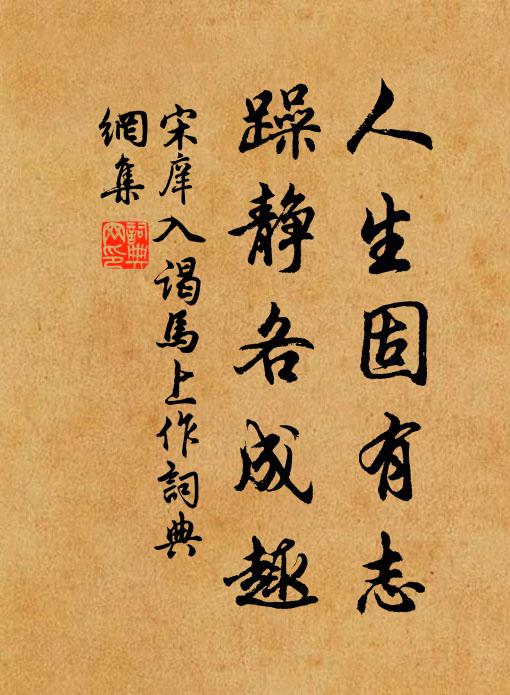 人生固有志
躁静各成趣
宋庠入谒馬上作詞典
網集
詞典
网印